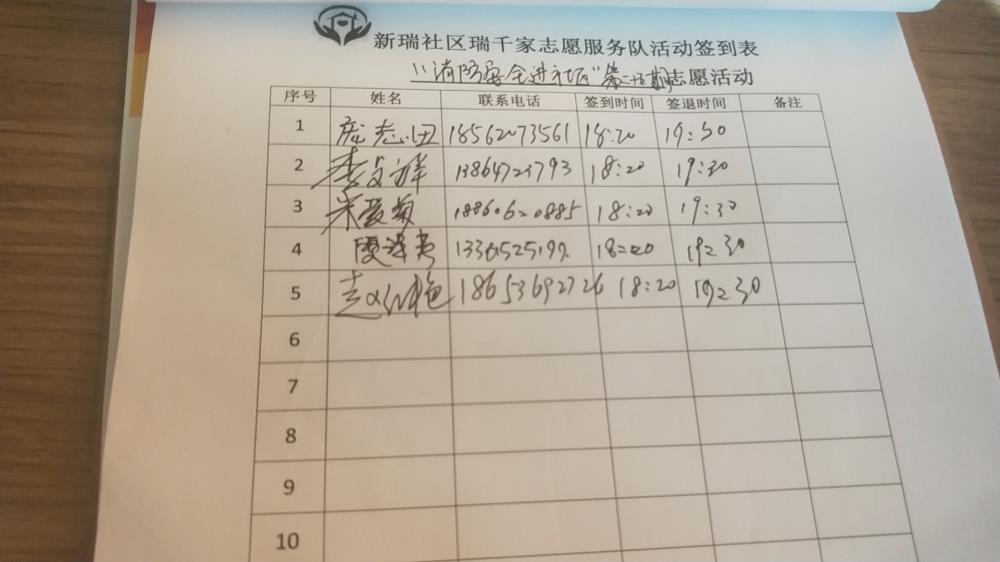 新瑞社区瑞千家志愿服务队活动签到表
"消防安全进社区"第二十五期志愿活动
序号 姓名 联系电话 签到时间 签退时间 备注
1 庞志田 18562073561 18:20 19:30
2 李文祥 13864723793 18:20 19:30
3 宋爱菊 18860620885 18:20 19:30
4 18:20 19:30
5 赵红艳 18653692726 18:20 19:30
6
7
8
9
10